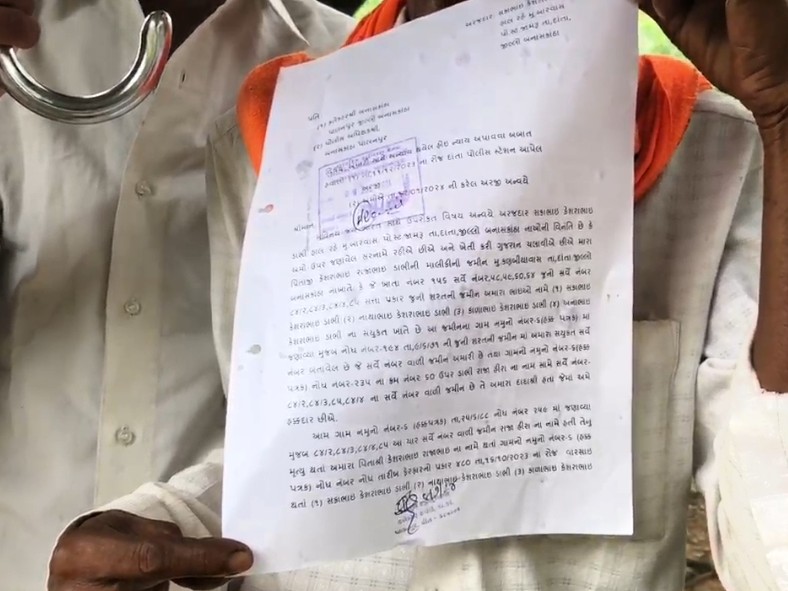 અરજદાર સકાભાઇ કેશરાભાઇ
હાલ રહે મુ.બારવાસ
પોસ્ટ જામરૂ તા.દાંતા,
જીલ્લો બનાસકાંઠા
પ્રતિ
(૧) કલેકટરશ્રી બનાસકાંઠા
પાલનપુર જીલ્લો બનાસકાંઠા
(૨) પોલીસ અધિક્ષકશ્રી,
બનાસકાંઠા પાલનપુર
અન્યાય કરેલ હોઇ ન્યાય અપાવવા બાબત
ના રોજ દાંતા પોલીસ સ્ટેશન આપેલ
અરજી
ની કરેલ અરજી અન્વયે
ઉપરોકત વિષય અન્વયે અરજદાર સકાભાઇ કેશરાભાઇ
ડાભી હાલ રહે મુ.બારવાસ પોસ્ટ જામરૂ તા.દાંતા,જીલ્લો બનાસકાંઠા નાઓની વિનંતિ છે કે
ઉપર જણાવેલ સરનામે રહીએ છીએ અને ખેતી કરી ગુજરાન ચલાવીએ છીએ મારા
પિતાજી કેશરાભાઇ રાજાભાઇ ડાભીની માલીકીની જમીન તા.દાંતા,જીલ્લો
બનાસકાંઠા કે જે ખાતા નંબર ૧૫૬ સર્વે નંબર જુનો સર્વે નંબર
૮૪/૨,૮૪/૩,૮૪/૪,૮૫ સત્તા પ્રકાર જુની શરતની જમીન અમારા ભાઇઓ નામે (૧) સકાભાઇ
કેશરાભાઇ ડાભી (૨) નાથાભાઇ કેશરાભાઇ ડાભી (૩) કાળાભાઇ કેશરાભાઇ ડાભી (૪) અનાભાઇ
કેશરાભાઇ ડાભી ના સંયુકત ખાતે છે આ જમીનના ગામ નમુનો નંબર-૬(હક્ક પત્રક) માં
જણાવ્યા મુજબ નોંધ નંબર-૧૦૪ ની જુની શરતની જમીન માં અમારા સંયુકત સર્વે
નંબર બતાવેલ છે જે સર્વે નંબર વાળી જમીન અમારી છે તથા ગામનો નમુનો નંબર-૬(હક્ક
પત્રક) નોંધ નંબર-૨૩૫ ના ક્રમ નંબર ૬૦ ઉપર ડાભી રાજા હીરા ના નામ સામે સર્વે નંબર-
૮૪/૨,૮૪/૩,૮૫,૮૪/૪ ના સર્વે નંબર વાળી જમીન છે તે અમારા દાદાશ્રી હતા જેમાં અમે
હક્કદાર છીએ.
આમ ગામ નમુનો નંબર-૬ (હક્કપત્રક) તા.૨૫/૬/૮૮ નોંધ નંબર ૨૫૦ માં જણાવ્યા
મુજબ ૮૪/૨,૮૪/૩,૮૪/૪,૮૫ આ ચાર સર્વે નંબર વાળી જમીન રાજા હીરા ના નામે હતી તેનુ
મૃત્યુ થતાં અમારા પિતાશ્રી કેશરાભાઇ રાજાભાઇ ના નામે થતાં ગામનો નમુનો નંબર-૬ (હક્ક
પત્રક) નોંધ નંબર નોંધ તારીખ ફેરફારનો પ્રકાર ૪૮૦ તા.૧૬/૧૦/૨૦૨૩ ના રોજ વારસાઇ
થતાં (૧) સકાભાઇ કેશરાભાઇ ડાભી (૨) નાથાભાઇ કેશરાભાઇ ડાભી (૩) કાળાભાઇ કેશરાભાઇ